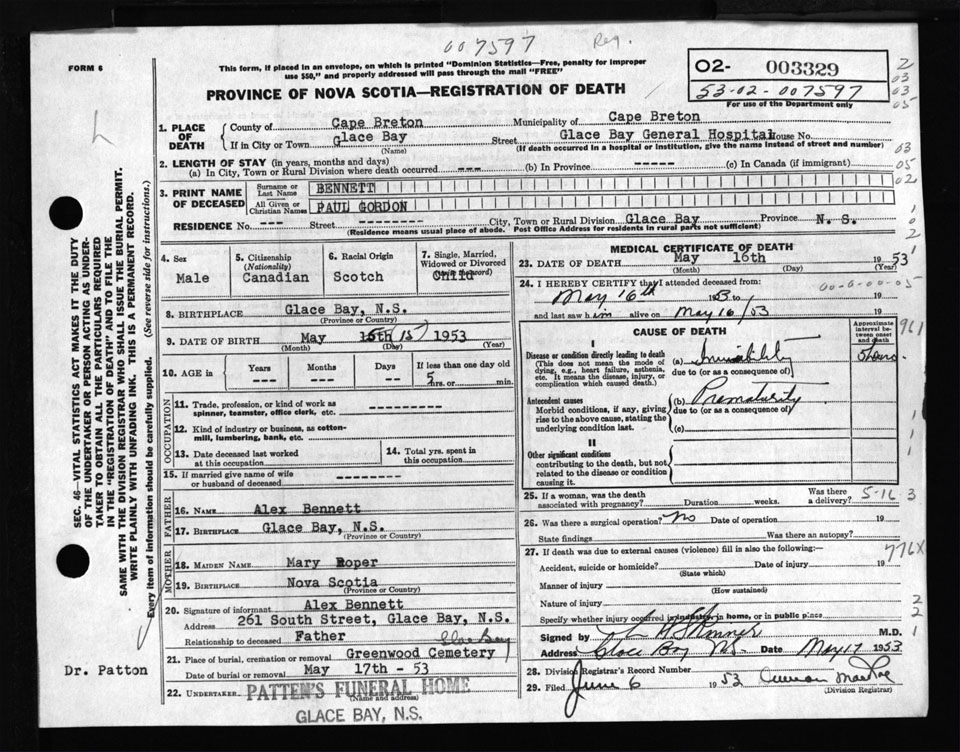 007597 Reg.
FORM 6
This form, if placed in an envelope, on which is printed "Dominion Statistics—Free, penalty for improper
use $50," and properly addressed will pass through the mail "FREE"
02- 003329
53-02-007597
For use of the Department only
PROVINCE OF NOVA SCOTIA—REGISTRATION OF DEATH
1. PLACE OF DEATH
County of Cape Breton Municipality of Cape Breton
If in City or Town Glace Bay Street Glace Bay General Hospital House No.
(Name) (If death occurred in a hospital or institution, give the name instead of street and number)
2. LENGTH OF STAY (in years, months and days)
(a) In City, Town or Rural Division where death occurred --- (b) In Province ----- (c) In Canada (if immigrant)
3. PRINT NAME OF DECEASED
Surname or Last Name BENNETT
All Given or Christian Names PAUL GORDON
RESIDENCE No. --- Street -------- City, Town or Rural Division Glace Bay Province N. S.
(Residence means usual place of abode. Post Office Address for residents in rural parts not sufficient)
4. Sex Male
5. Citizenship (Nationality) Canadian
6. Racial Origin Scotch
7. Single, Married, Widowed or Divorced Child
8. BIRTHPLACE Glace Bay, N.S.
(Province or Country)
9. DATE OF BIRTH May 15th (15) 1953
(Month) (Day) (Year)
10. AGE in Years --- Months --- Days -- If less than one day old 5 hrs. or min.
OCCUPATION
11. Trade, profession, or kind of work as
spinner, teamster, office clerk, etc. ---------
12. Kind of industry or business, as cotten-
mill, lumbering, bank, etc.
13. Date deceased last worked
at this occupation
14. Total yrs. spent in
this occupation
15. If married give name of wife
or husband of deceased
FATHER
16. NAME Alex Bennett
17. BIRTHPLACE Glace Bay, N.S.
(Province or Country)
MOTHER
18. MAIDEN NAME Mary Roper
19. BIRTHPLACE Nova Scotia
(Province or Country)
20. Signature of informant Alex Bennett
Address 261 South Street, Glace Bay, N.S.
Relationship to deceased Father
21. Place of burial, cremation or removal Greenwood Cemetery Glace Bay
Date of burial or removal May 17th - 53
22. UNDERTAKER PATTEN'S FUNERAL HOME
(Name and address)
GLACE BAY, N.S.
MEDICAL CERTIFICATE OF DEATH
23. DATE OF DEATH May 16th 1953
(Month) (Day) (Year)
24. I HEREBY CERTIFY that I attended deceased from:
May 16th 1953 to 19
and last saw him alive on May 16/53 19
00-0-00-05
CAUSE OF DEATH
Approximate interval between onset and death
I
Disease or condition directly leading to death
(This does not mean the mode of
dying, e.g., heart failure, asthenia,
etc. It means the disease, injury, or
complication which caused death.)
(a) Inviability 5 hours
due to (or as a consequence of)
Antecedent causes
Morbid conditions, if any, giving
rise to the above cause, stating the
underlying condition last.
(b) Prematurity
due to (or as a consequence of)
(c)
II
Other significant conditions
contributing to the death, but not
related to the disease or condition
causing it.
25. If a woman, was the death
associated with pregnancy? Duration weeks. Was there a delivery? 5-16 3
26. Was there a surgical operation? No Date of operation 19
State findings Was there an autopsy?
27. If death was due to external causes (violence) fill in also the following:— 776X
Accident, suicide or homicide? Date of injury 19
(State which)
Manner of injury
(How sustained)
Nature of injury
Specify whether injury occurred in industry, in home, or in public place
Signed by M.D.
Address Glace Bay N.S. Date May 17 1953
28. Division Registrar's Record Number
29. Filed June 6 1953 Duncan MacRae
(Division Registrar)
SEC. 46—VITAL STATISTICS ACT MAKES IT THE DUTY
OF THE UNDERTAKER OR PERSON ACTING AS UNDER-
TAKER TO OBTAIN ALL THE PARTICULARS REQUIRED
IN THE "REGISTRATION OF DEATH" AND TO FILE THE
SAME WITH THE DIVISION REGISTRAR WHO SHALL ISSUE THE BURIAL PERMIT.
WRITE PLAINLY WITH UNFADING INK. THIS IS A PERMANENT RECORD.
Every item of information should be carefully supplied. (See reverse side for instructions.)
Dr. Patton